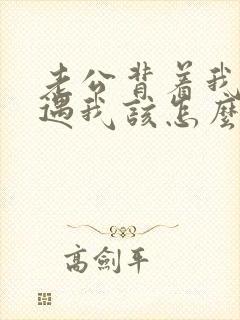 老公背着我
遇我该怎么
高劍平